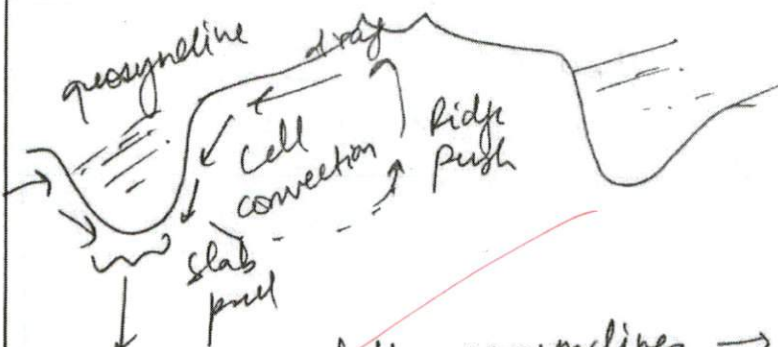 geosyncline
drag
Cell
convection
Ridge
push
Slab
pull
geosynclines →